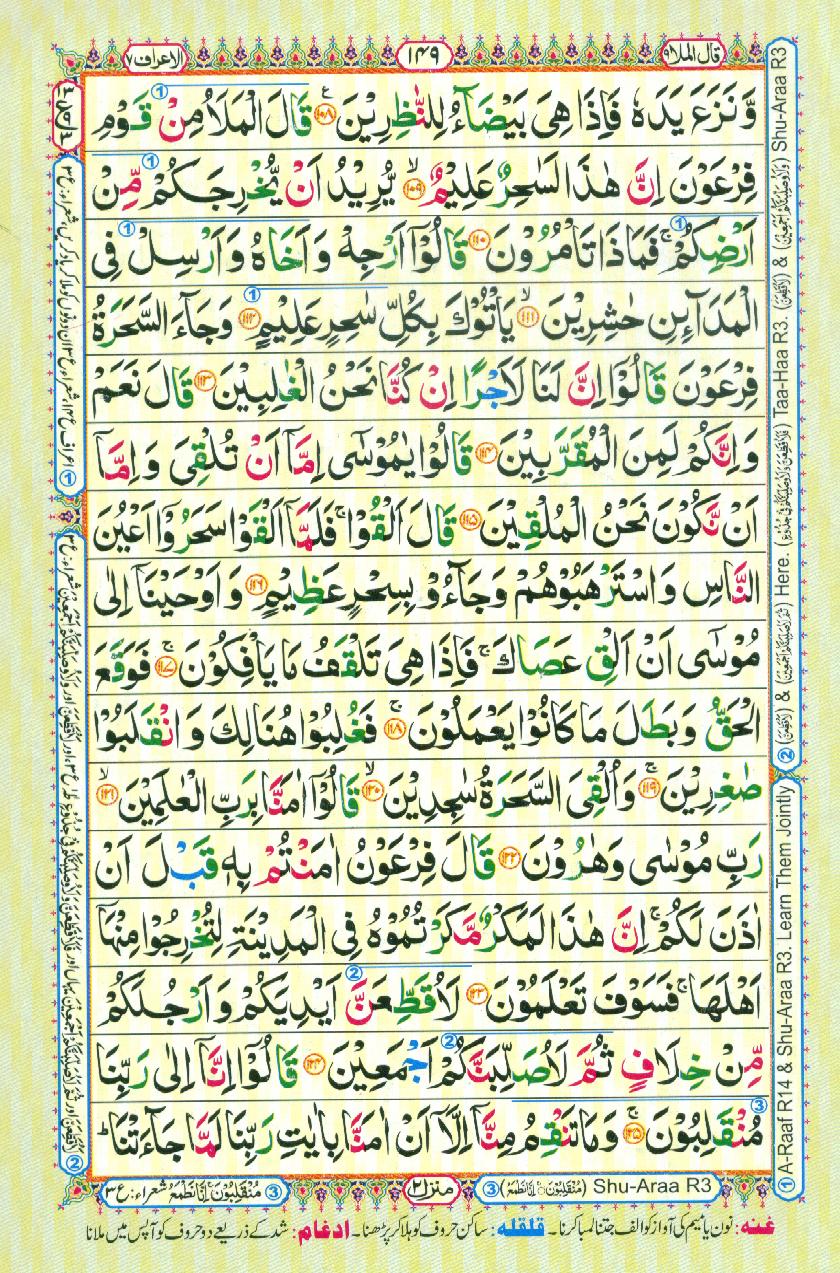 قال الملا٩
١٤٩
الاعراف٧
وَّنَزَعَ يَدَهٗ فَاِذَا هِىَ بَيۡضَآءُ لِلنّٰظِرِيۡنَ ﴿۱۰۸﴾ قَالَ الۡمَلَاُ مِنۡ قَوۡمِ
فِرۡعَوۡنَ اِنَّ هٰذَا لَسٰحِرٌ عَلِيۡمٌ ﴿۱۰۹﴾ يُّرِيۡدُ اَنۡ يُّخۡرِجَكُمۡ مِّنۡ
اَرۡضِكُمۡ‌ ۚ فَمَاذَا تَاۡمُرُوۡنَ ﴿۱۱۰﴾ قَالُوۡۤا اَرۡجِهۡ وَاَخَاهُ وَاَرۡسِلۡ فِى
الۡمَدَآٮِٕنِ حٰشِرِيۡنَ ﴿۱۱۱﴾ يَاۡتُوۡكَ بِكُلِّ سٰحِرٍ عَلِيۡمٍ ﴿۱۱۲﴾ وَجَآءَ السَّحَرَةُ
فِرۡعَوۡنَ قَالُوۡۤا اِنَّ لَنَا لَاَجۡرًا اِنۡ كُنَّا نَحۡنُ الۡغٰلِبِيۡنَ ﴿۱۱۳﴾ قَالَ نَعَمۡ
وَاِنَّكُمۡ لَمِنَ الۡمُقَرَّبِيۡنَ ﴿۱۱۴﴾ قَالُوۡا يٰمُوۡسٰٓى اِمَّاۤ اَنۡ تُلۡقِىَ وَاِمَّاۤ
اَنۡ نَّكُوۡنَ نَحۡنُ الۡمُلۡقِيۡنَ ﴿۱۱۵﴾ قَالَ اَلۡقُوۡا‌ ۚ فَلَمَّاۤ اَلۡقَوۡا سَحَرُوۡۤا اَعۡيُنَ
النَّاسِ وَاسۡتَرۡهَبُوۡهُمۡ وَجَآءُوۡ بِسِحۡرٍ عَظِيۡمٍ ﴿۱۱۶﴾ وَاَوۡحَيۡنَاۤ اِلٰى
مُوۡسٰٓى اَنۡ اَلۡقِ عَصَاكَ‌ ۚ فَاِذَا هِىَ تَلۡقَفُ مَا يَاۡفِكُوۡنَ‌ ۚ ﴿۱۱۷﴾ فَوَقَعَ
الۡحَـقُّ وَبَطَلَ مَا كَانُوۡا يَعۡمَلُوۡنَ‌ ۚ ﴿۱۱۸﴾ فَغُلِبُوۡا هُنَالِكَ وَانْقَلَبُوۡا
صٰغِرِيۡنَ‌ ۚ ﴿۱۱۹﴾ وَاُلۡقِىَ السَّحَرَةُ سٰجِدِيۡنَ ۙ ﴿۱۲۰﴾ قَالُوۡۤا اٰمَنَّا بِرَبِّ الۡعٰلَمِيۡنَ ۙ ﴿۱۲۱﴾
رَبِّ مُوۡسٰى وَهٰرُوۡنَ ﴿۱۲۲﴾ قَالَ فِرۡعَوۡنُ اٰمَنۡتُمۡ بِهٖ قَبۡلَ اَنۡ
اٰذَنَ لَكُمۡ‌ ۚ اِنَّ هٰذَا لَمَكۡرٌ مَّكَرۡتُمُوۡهُ فِى الۡمَدِيۡنَةِ لِتُخۡرِجُوۡا مِنۡهَاۤ
اَهۡلَهَا‌ ۚ فَسَوۡفَ تَعۡلَمُوۡنَ ﴿۱۲۳﴾ لَاُقَطِّعَنَّ اَيۡدِيَكُمۡ وَاَرۡجُلَكُمۡ
مِّنۡ خِلَافٍ ثُمَّ لَاُصَلِّبَنَّكُمۡ اَجۡمَعِيۡنَ ﴿۱۲۴﴾ قَالُوۡۤا اِنَّاۤ اِلٰى رَبِّنَا
مُنۡقَلِبُوۡنَ‌ ۚ ﴿۱۲۵﴾ وَمَا تَنۡقِمُ مِنَّاۤ اِلَّاۤ اَنۡ اٰمَنَّا بِاٰيٰتِ رَبِّنَا لَمَّا جَآءَتۡنَا‌ ؕ
① A-Raaf R14 & Shu-Araa R3. Learn Them Jointly
② (لَاُقَطِّعَنَّ) & (ثُمَّ لَاُصَلِّبَنَّكُمْ اَجْمَعِيْنَ) Here. (فَلَاُقَطِّعَنَّ وَلَاُوصَلِّبَنَّكُمْ فِىْ جُذُوْعِ) Taa-Haa R3. (لَاُقَطِّعَنَّ) & (وَلَاُوصَلِّبَنَّكُمْ اَجْمَعِيْنَ) Shu-Araa R3
③ (مُنْقَلِبُوْنَ ۝ اِنَّا نَطْمَعُ) Shu-Araa R3
منزل٢
③ مُنْقَلِبُوْنَ ۝ اِنَّا نَطْمَعُ شعراء:ع٣
غنه: نون یا میم کی آواز کو الف جتنا لمبا کرنا۔ قلقله: ساکن حروف کو ہلا کر پڑھنا۔ ادغام: شد کے ذریعے دو حروف کو آپس میں ملانا